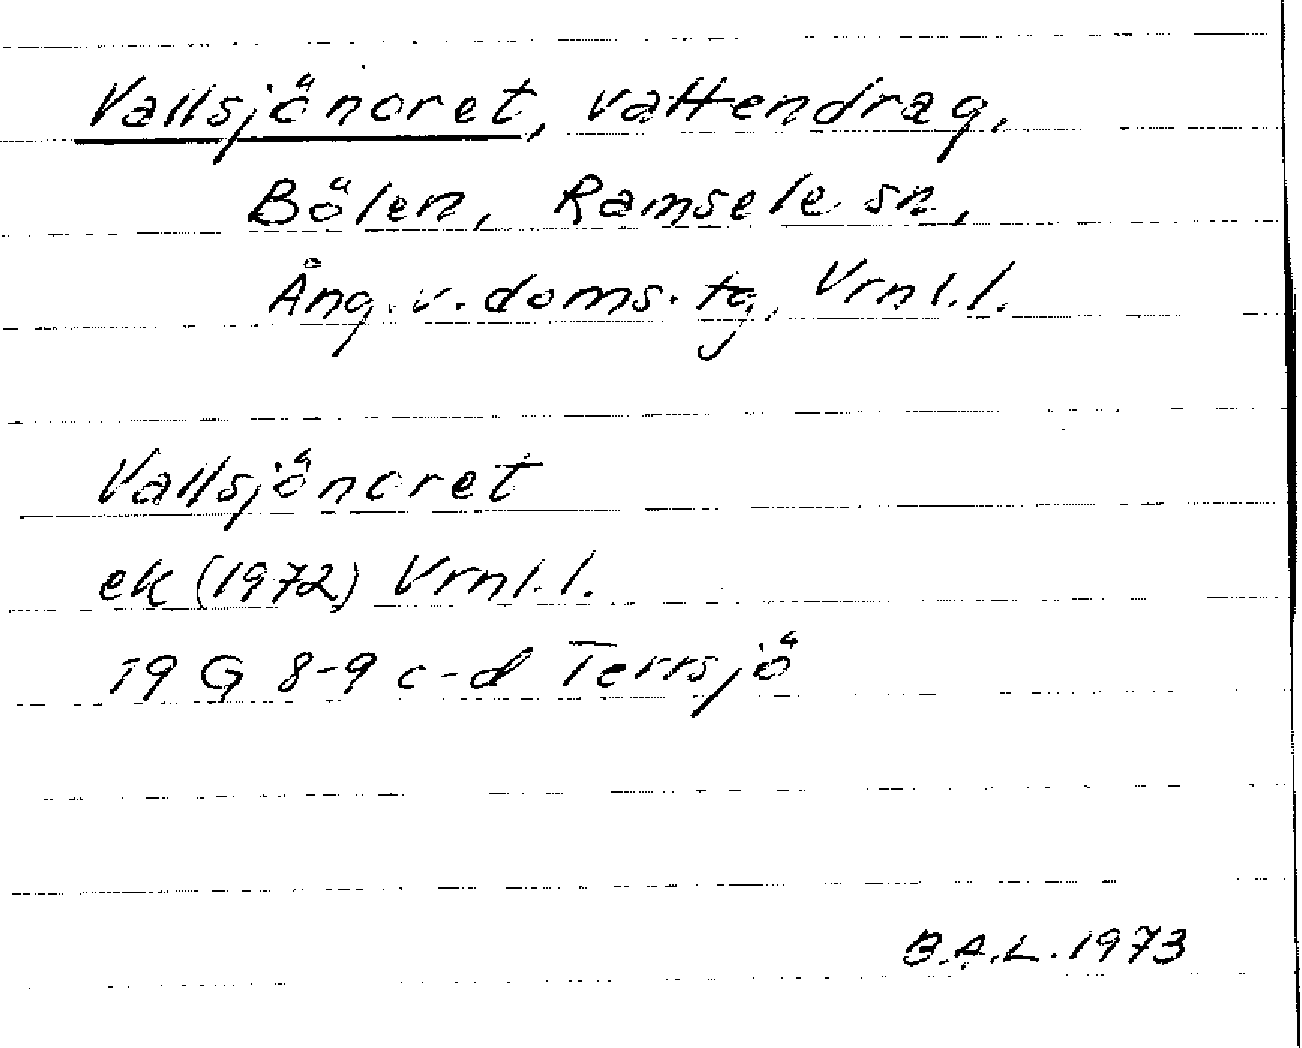 Vallsjönoret, vattendrag,
Bölen, Ramsele sn,
Ång. v. doms. tg, Vrnl. l.
Vallsjönoret
ek (1972) Vrnl. l.
19 G 8-9 c-d Terrsjö
B.A.L. 1973